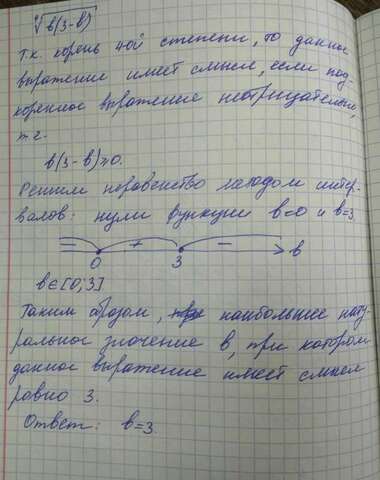 ⁴√b(3-b)
т.к. корень 4ой степени, то данное
выражение имеет смысл, если под-
коренное выражение неотрицательно,
т.е.
b(3-b)≥0.
Решим неравенство методом интер-
валов: нули функции b=0 и b=3
− + −
0 3 b
b∈[0;3]
Таким образом, наибольшее нату-
ральное значение b, при котором
данное выражение имеет смысл
равно 3.
Ответ: b=3.